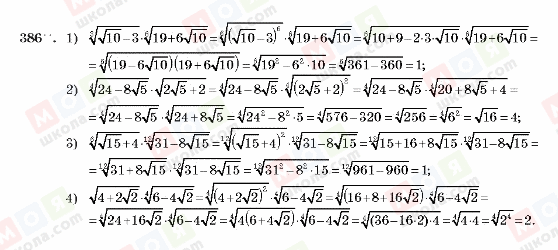 386. 1) ∛(√10−3) · ⁶√(19+6√10) = ⁶√((√10−3)⁶) · ⁶√(19+6√10) = ⁶√(10+9−2·3·√10) · ⁶√(19+6√10) =
= ⁶√((19−6√10)(19+6√10)) = ⁶√(19²−6²·10) = ⁶√(361−360) = 1;
2) ⁴√(24−8√5) · √(2√5+2) = ⁴√(24−8√5) · ⁴√((2√5+2)²) = ⁴√(24−8√5) · ⁴√(20+8√5+4) =
= ⁴√(24−8√5) · ⁴√(24+8√5) = ⁴√(24²−8²·5) = ⁴√(576−320) = ⁴√256 = ⁴√6² = √16 = 4;
3) ⁶√(√15+4) · ¹²√(31−8√15) = ¹²√((√15+4)²) · ¹²√(31−8√15) = ¹²√(15+16+8√15) · ¹²√(31−8√15) =
= ¹²√(31+8√15) · ¹²√(31−8√15) = ¹²√(31²−8²·15) = ¹²√(961−960) = 1;
4) √(4+2√2) · ⁴√(6−4√2) = ⁴√((4+2√2)²) · ⁴√(6−4√2) = ⁴√(16+8+16√2) · ⁴√(6−4√2) =
= ⁴√(24+16√2) · ⁴√(6−4√2) = ⁴√(4(6+4√2)) · ⁴√(6−4√2) = ⁴√((36−16·2)·4) = ⁴√(4·4) = ⁴√2⁴ = 2.